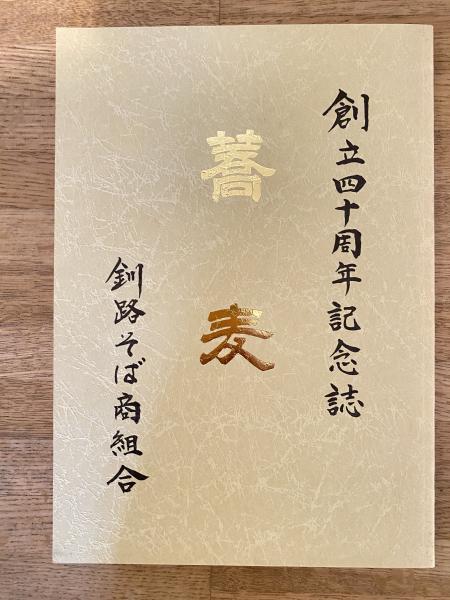 創立四十周年記念誌
蕎麦
釧路そば商組合